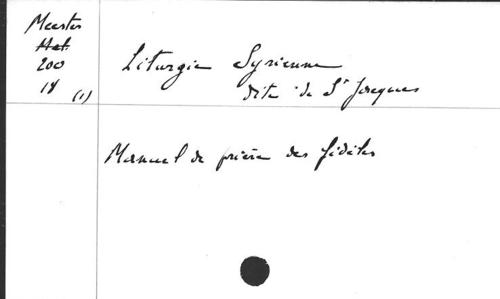 Meester
Mel.
200
18 (1)
Liturgie Syrienne
dite de St Jacques
Manuel de prière des fidèles